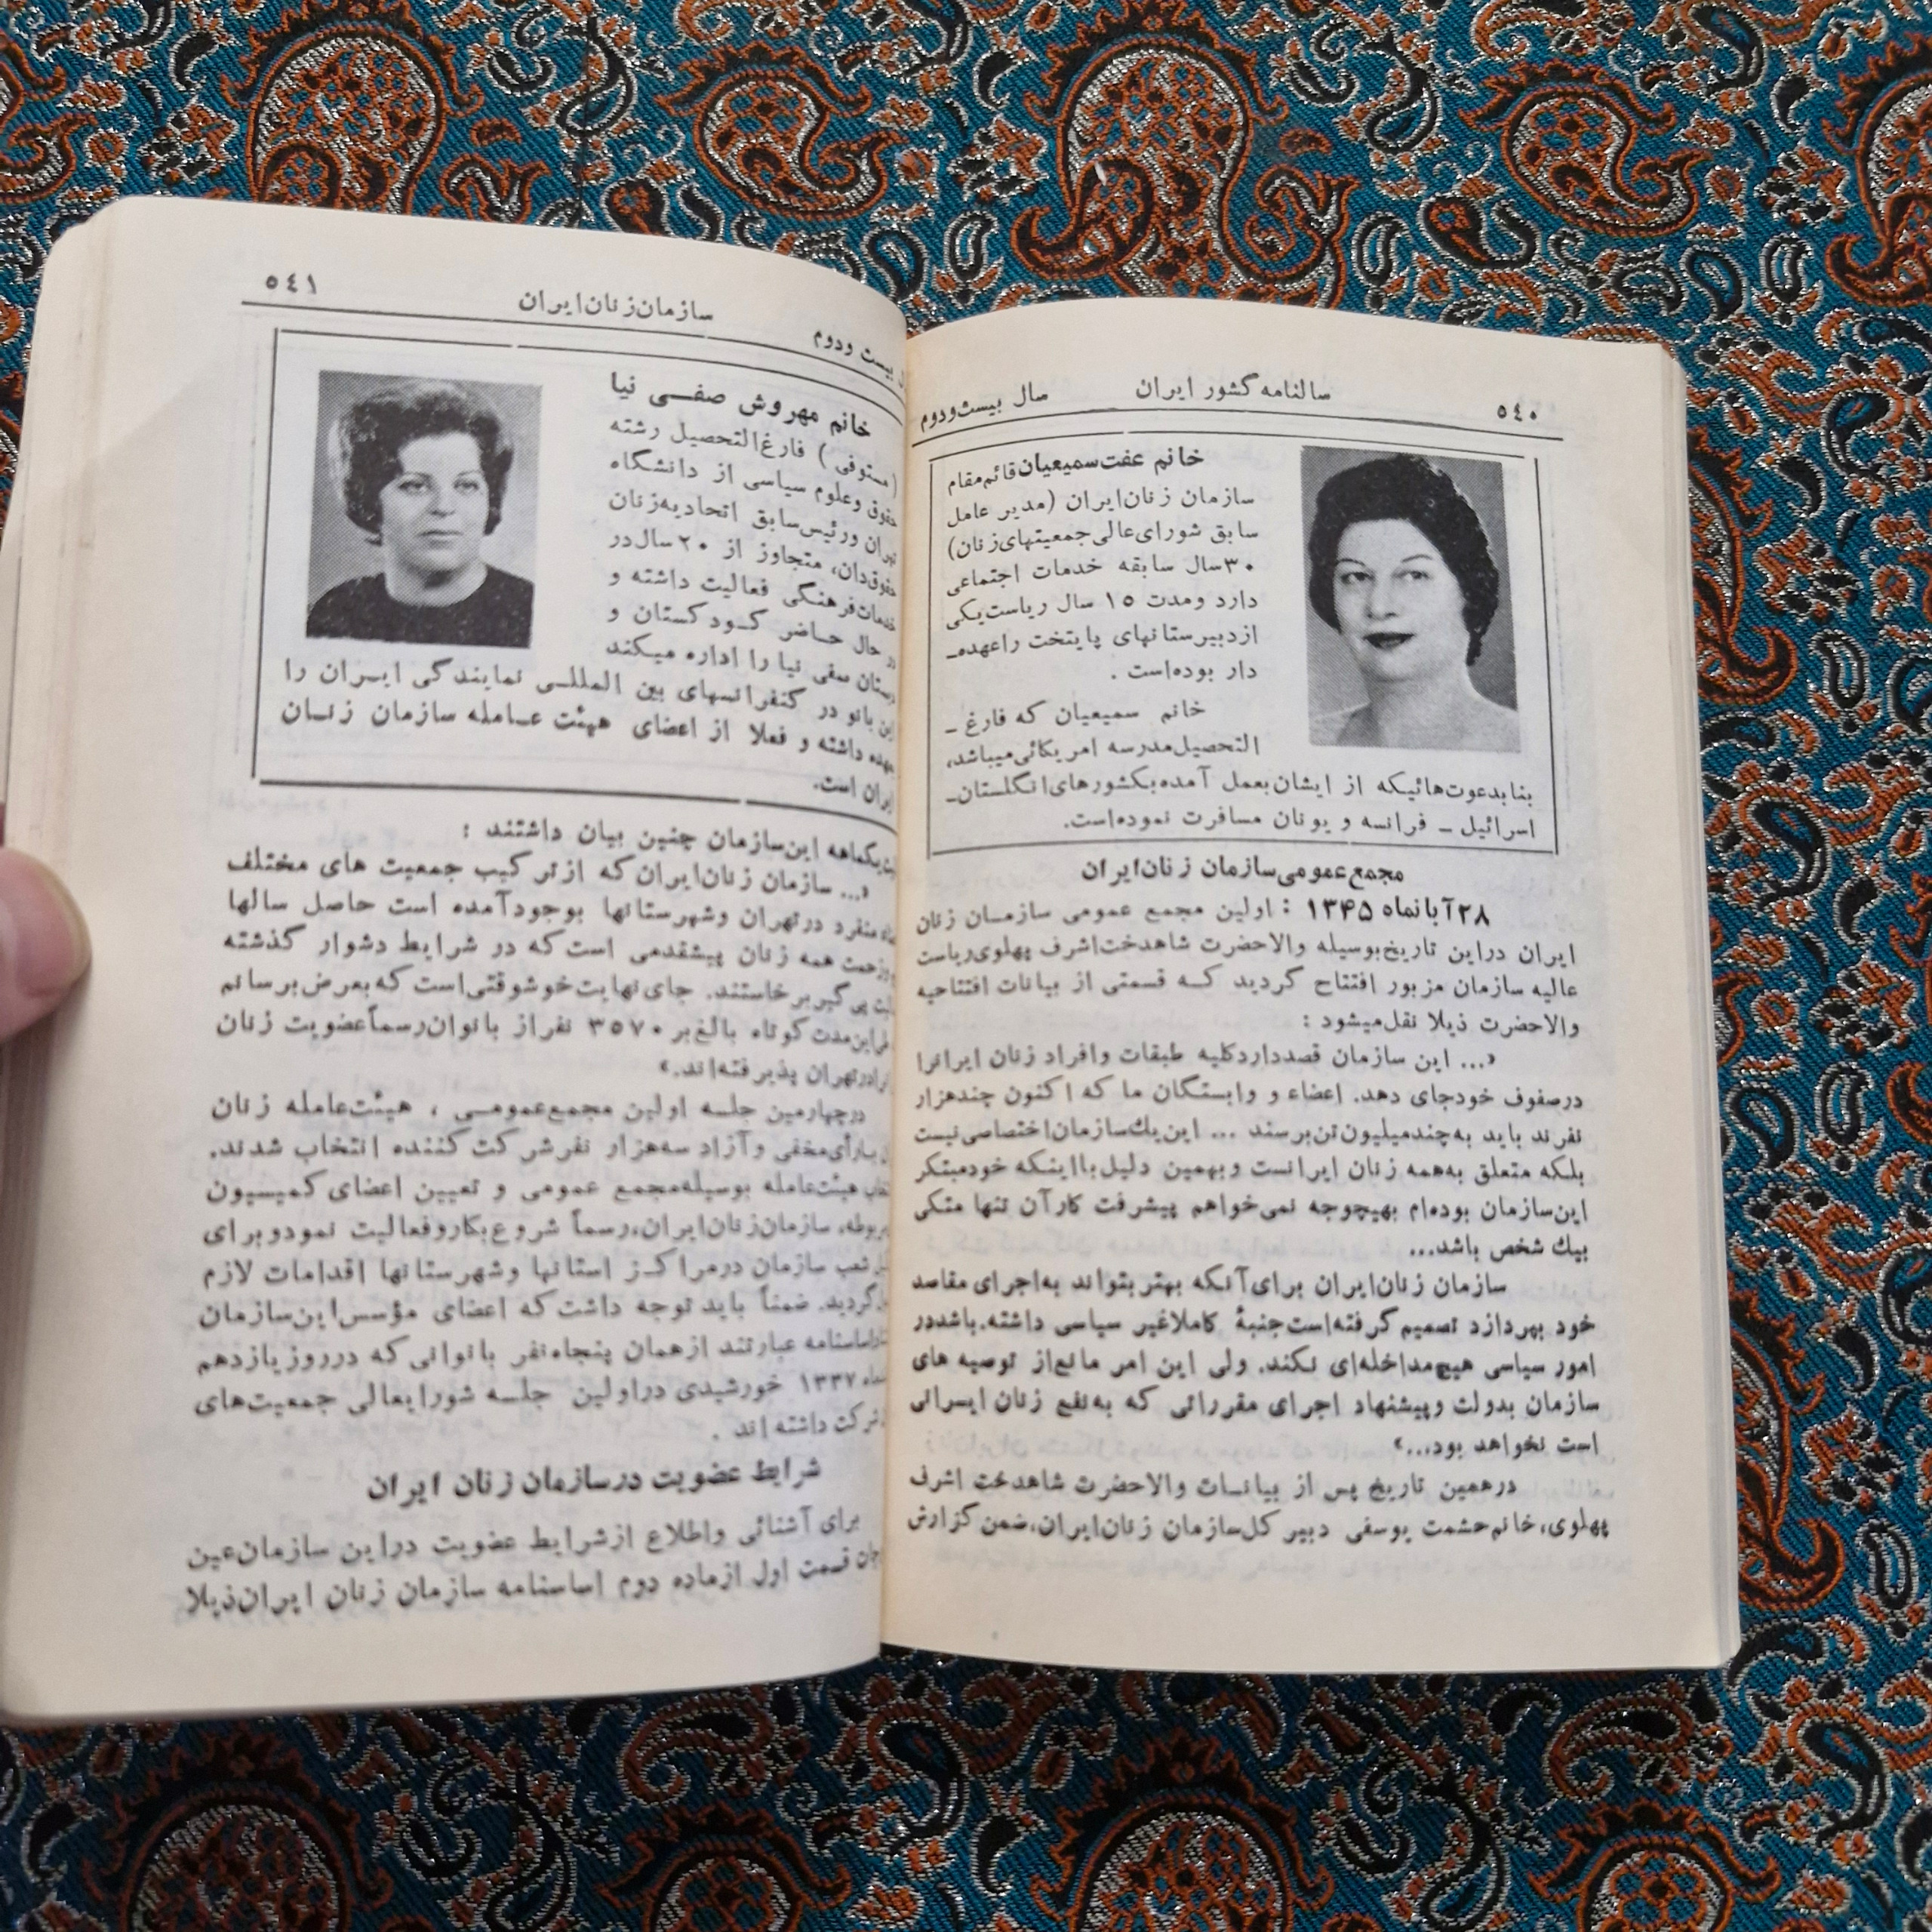 ٥٤٠
سالنامه کشور ایران
سال بیست‌ودوم
خانم عفت سمیعیان قائم‌مقام
سازمان زنان ایران (مدیر عامل
سابق شورای عالی جمعیتهای زنان)
۳۰ سال سابقه خدمات اجتماعی
دارد ومدت ۱٥ سال ریاست یکی
از دبیرستانهای پایتخت را عهده‌ـ
دار بوده‌است .
خانم سمیعیان که فارغ ـ
التحصیل مدرسه امریکائی میباشد،
بنا بدعوت‌هائیکه از ایشان بعمل آمده بکشورهای انگلستان‌ـ
اسرائیل ـ فرانسه و یونان مسافرت نموده‌است.
مجمع عمومی سازمان زنان ایران
۲۸ آبانماه ۱۳۴۵ : اولین مجمع عمومی سازمـان زنان
ایران در این تاریخ بوسیله والاحضرت شاهدخت اشرف پهلوی ریاست
عالیه سازمان مزبور افتتاح گردید کـه قسمتی از بیانات افتتاحیه
والاحضرت ذیلا نقل میشود :
«... این سازمان قصد دارد کلیه طبقات وافراد زنان ایرانرا
در صفوف خود جای دهد. اعضاء و وابستگان ما که اکنون چند هزار
نفرند باید به چند میلیون تن برسند ... این یك سازمان اختصاصی نیست
بلکه متعلق به‌همه زنان ایرانست و بهمین دلیل با اینکه خود مبتکر
این سازمان بوده‌ام بهیچوجه نمی‌خواهم پیشرفت کار آن تنها متکی
بیك شخص باشد...
سازمان زنان ایران برای آنکه بهتر بتواند به‌اجرای مقاصد
خود بپردازد تصمیم گرفته‌است جنبهٔ کاملا غیر سیاسی داشته. باشد در
امور سیاسی هیچ مداخله‌ای نکند. ولی این امر مانع از توصیه های
سازمان بدولت و پیشنهاد اجرای مقرراتی که به‌نفع زنان ایـرانی
است نخواهد بود...»
در همین تاریخ پس از بیانـات والاحضرت شاهدخت اشرف
پهلوی، خانم حشمت یوسفی دبیر کل سازمان زنان ایران، ضمن گزارش
٥٤١
سازمان زنان ایران
بیست ودوم
خانم مهروش صفـی نیا
(مستوفی) فارغ‌التحصیل رشته
حقوق وعلوم سیاسی از دانشگاه
تهران ورئیس سابق اتحادیه زنان
حقوق‌دان، متجاوز از ۲۰ سال در
خدمات فرهنگی فعالیت داشته و
در حال حـاضر کـودکستان و
دبستان صفی نیا را اداره میکند
این بانو در کنفرانسهای بین المللـی نمایندگی ایـران را
عهده داشته و فعلا از اعضای هیئت عـامله سازمان زنـان
ایران است.
یکماهه این سازمان چنین بیان داشتند :
«... سازمان زنان ایران که از ترکیب جمعیت های مختلف
منفرد در تهران وشهرستانها بوجود آمده است حاصل سالها
زحمت همه زنان پیشقدمی است که در شرایط دشوار گذشته
پی گیر برخاستند. جای نهایت خوشوقتی است که بعرض برسانم
در این مدت کوتاه بالغ بر ۳۵۷۰ نفر از بانوان رسماً عضویت زنان
در تهران پذیرفته‌اند.»
در چهارمین جلسه اولین مجمع عمومـی ، هیئت عامله زنان
بارأی مخفی و آزاد سه‌هزار نفر شرکت کننده انتخاب شدند.
هیئت عامله بوسیله مجمع عمومی و تعیین اعضای کمیسیون
مربوطه، سازمان زنان ایران، رسماً شروع بکار و فعالیت نمود و برای
شعب سازمان در مراکـز استانها وشهرستانها اقدامات لازم
گردید. ضمناً باید توجه داشت که اعضای مؤسس این سازمان
اساسنامه عبارتند از همان پنجاه نفر بانوانی که در روز یازدهم
ماه ۱۳۳۷ خورشیدی در اولین جلسه شورایعالی جمعیت‌های
شرکت داشته اند .
شرایط عضویت در سازمان زنان ایران
برای آشنائی واطلاع از شرایط عضویت در این سازمان عین
قسمت اول از ماده دوم اساسنامه سازمان زنان ایران ذیلا